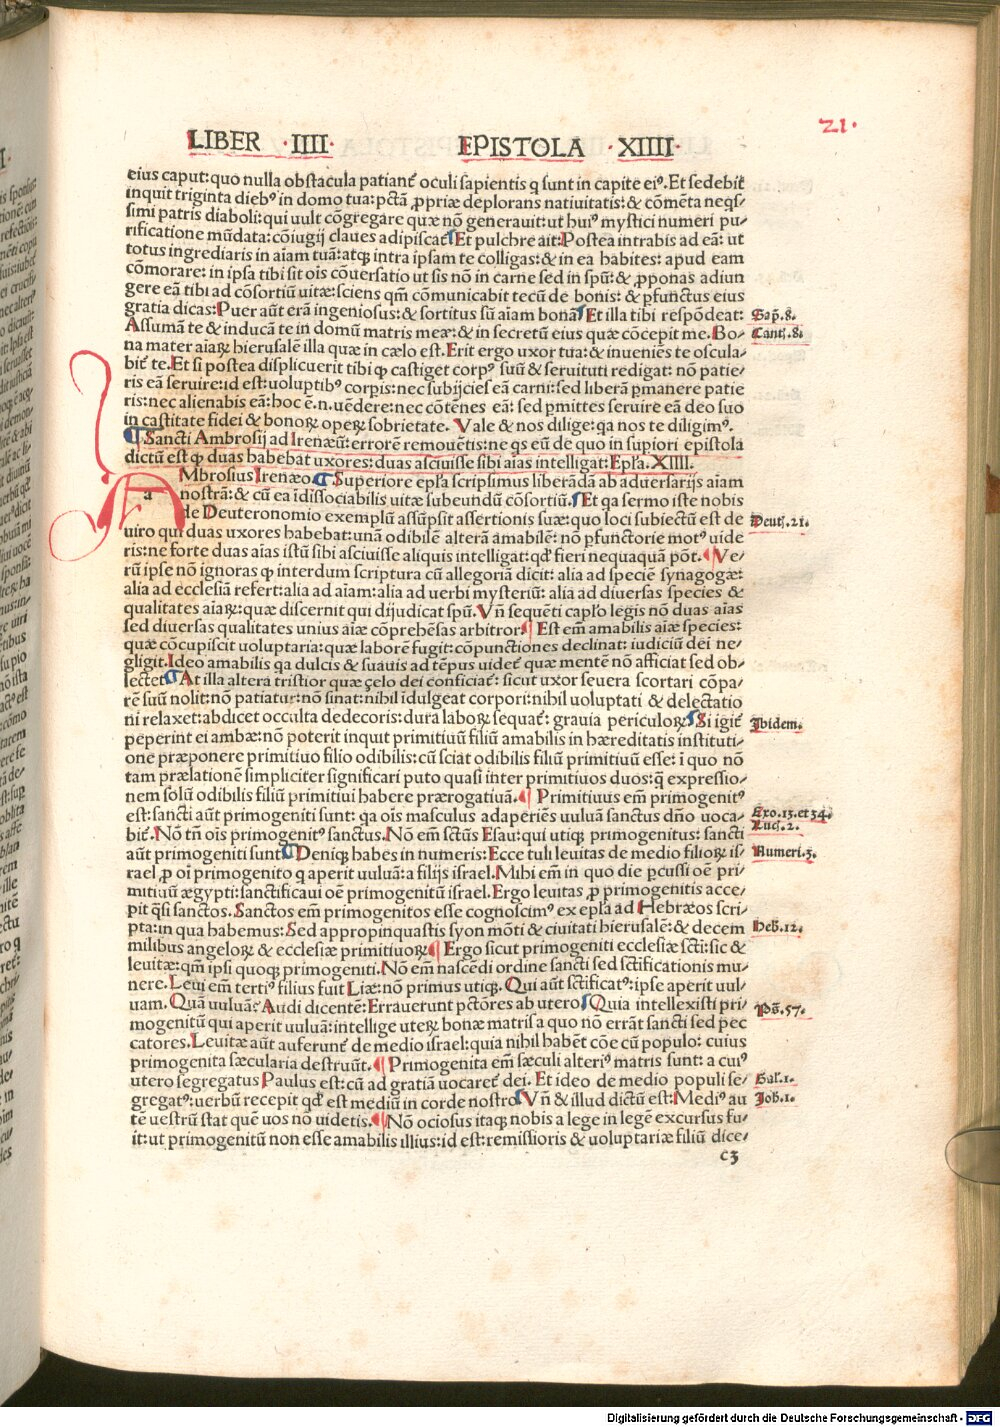 LIBER ·IIII· EPISTOLA ·XIIII·
21·
eius caput: quo nulla obstacula patiant̃ oculi sapientis q sunt in capite eiꝰ. Et sedebit
inquit triginta diebꝰ in domo tua: pctã ꝓpriæ deplorans natiuitatis: & cõmẽta neqs/
simi patris diaboli: qui uult cõgregare quæ nõ generauit: ut huiꝰ mystici numeri pu/
rificatione mũdata: cõiugij claues adipiscat̃ Et pulchre ait: Postea intrabis ad eã: ut
totus ingrediaris in aiam tuã: atqꝫ intra ipsam te colligas: & in ea habites: apud eam
cõmorare: in ipsa tibi sit ois cõuersatio ut sis nõ in carne sed in spũ: & ꝓponas adiun
gere eã tibi ad cõsortiũ uitæ: sciens qm̃ cõmunicabit tecũ de bonis: & ꝑfunctus eius
gratia dicas: Puer aũt erã ingeniosus: & sortitus sũ aiam bonã Et illa tibi respõdeat:
Assumã te & inducã te in domũ matris meæ: & in secretũ eius quæ cõcepit me. Bo/
na mater aiaꝝ hierusalẽ illa quæ in cælo est. Erit ergo uxor tua: & inuenies te oscula/
bit̃ te. Et si postea displicuerit tibi ꝙ castiget corpꝰ suũ & seruituti redigat: nõ patie/
ris eã seruire: id est: uoluptibꝰ corpis: nec subijcies eã carni: sed liberã ꝑmanere patie
ris: nec alienabis eã: hoc ẽ. n. uẽdere: nec cõtẽnes eã: sed ꝑmittes seruire eã deo suo
in castitate fidei & bonoꝝ opeꝝ sobrietate. Vale & nos dilige: qa nos te diligimꝰ.
Sancti Ambrosij ad Irenæũ: errorẽ remouẽtis: ne qs eũ de quo in supiori epistola
dictũ est ꝙ duas habebat uxores: duas asciuisse sibi aias intelligat: Epl̃a. XIIII.
A
a
Mbrosius Irenæo. Superiore epl̃a scripsimus liberãdã ab aduersarijs aiam
nostrã: & cũ ea idissociabilis uitæ subeundũ cõsortiũ. Et qa sermo iste nobis
de Deuteronomio exemplũ assũpsit assertionis suæ: quo loci subiectũ est de
uiro qui duas uxores habebat: unã odibilẽ alterã amabilẽ: nõ ꝑfunctorie motꝰ uide
ris: ne forte duas aias istũ sibi asciuisse aliquis intelligat: qd̃ fieri nequaquã põt. Ve/
rũ ipse nõ ignoras ꝙ interdum scriptura cũ allegoriã dicit: alia ad speciẽ synagogæ:
alia ad ecclesiã refert: alia ad aiam: alia ad uerbi mysteriũ: alia ad diuersas species &
qualitates aiaꝝ: quæ discernit qui dijudicat spũ. Vñ sequẽti capl̃o legis nõ duas aias
sed diuersas qualitates unius aiæ cõprehẽsas arbitror. Est em̃ amabilis aiæ species:
quæ cõcupiscit uoluptaria: quæ laborẽ fugit: cõpunctiones declinat: iudiciũ dei ne/
gligit. Ideo amabilis qa dulcis & suauis ad tẽpus uidet̃ quæ mentẽ nõ afficiat sed ob/
lectet At illa altera tristior quæ çelo dei conficiat̃: sicut uxor seuera scortari cõpa/
rẽ suũ nolit: nõ patiatur: nõ sinat: nihil idulgeat corpori: nihil uoluptati & delectatio
ni relaxet: abdicet occulta dedecoris: dura laboꝝ sequat̃: grauia periculoꝝ Si igit̃
Ibidem.
peperint ei ambæ: nõ poterit inquit primitiuũ filiũ amabilis in hæreditatis instituti/
one præponere primitiuo filio odibilis: cũ sciat odibilis filiũ primitiuũ esse: i quo nõ
tam prælationẽ simpliciter significari puto quasi inter primitiuos duos: q̃ expressio/
nem solũ odibilis filiũ primitiui habere prærogatiuã. Primitiuus em̃ primogenitꝰ
est: sancti aũt primogeniti sunt: qa ois masculus adaperiẽs uuluã sanctus dño uoca/
Exo. 13. et 34.
bit̃. Nõ tñ ois primogenitꝰ sanctus. Nõ em̃ sctũs Esau: qui utiqꝫ primogenitus: sancti
Luc̃. 2.
aũt primogeniti sunt Deniqꝫ habes in numeris: Ecce tuli leuitas de medio filioꝝ is/
Numeri. 3.
rael, ꝓ oi primogenito q aperit uuluã: a filijs israel. Mihi em̃ in quo die ꝑcussi oẽ pri/
mitiuũ ægypti: sanctificaui oẽ primogenitũ israel. Ergo leuitas, ꝓ primogenitis acce/
pit q̃si sanctos. Sanctos em̃ primogenitos esse cognoscimꝰ ex epl̃a ad Hebræos scri/
pta: in qua habemus: Sed appropinquastis syon mõti & ciuitati hierusalẽ: & decem
Heb̃. 12.
milibus angeloꝝ & ecclesiæ primitiuoꝝ Ergo sicut primogeniti ecclesiæ scti: sic &
leuitæ: qm̃ ipsi quoqꝫ primogeniti. Nõ em̃ nascẽdi ordine sancti sed sctificationis mu/
nere. Leui em̃ tertiꝰ filius fuit Liæ: nõ primus utiqꝫ. Qui aũt sctificat̃: ipse aperit uul/
uam. Quã uuluã? Audi dicentẽ: Errauerunt pctõres ab utero Quia intellexisti pri/
Ps̃. 57.
mogenitũ qui aperit uuluã: intellige uteꝝ bonæ matris a quo nõ errãt sancti sed pec
catores. Leuitæ aũt auferunt̃ de medio israel: quia nihil habẽt cõe cũ populo: cuius
primogenita sæcularia destruũt. Primogenita em̃ sæculi alteriꝰ matris sunt: a cuiꝰ
utero segregatus Paulus est: cũ ad gratiã uocaret̃ dei. Et ideo de medio populi se/
Gal̃. 1.
gregatꝰ: uerbũ recepit qd̃ est mediũ in corde nostro Vñ & illud dictũ est: Mediꝰ au
Joh̃. 1.
tẽ uestrũ stat quẽ uos nõ uidetis. Nõ ociosus itaqꝫ nobis a lege in legẽ excursus fu/
it: ut primogenitũ non esse amabilis illius: id est: remissioris & uoluptariæ filiũ dice/
c3
Sap̃. 8.
Cant̃. 8.
Deut̃. 21.
Digitalisierung gefördert durch die Deutsche Forschungsgemeinschaft - DFG